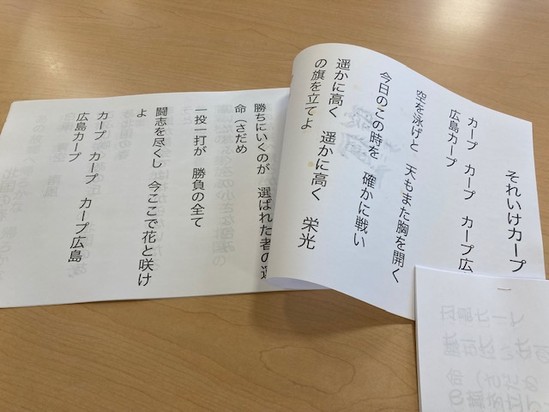 それいけカープ
カープ カープ カープ広
広島カープ
空を泳げと 天もまた胸を開く
今日のこの時を 確かに戦い
遥かに高く 遥かに高く 栄光
の旗を立てよ
勝ちにいくのが 選ばれた者の
命（さだめ
一投一打が 勝負の全て
闘志を尽くし 今ここで花と咲け
よ
カープ カープ カープ広島
広島カープ